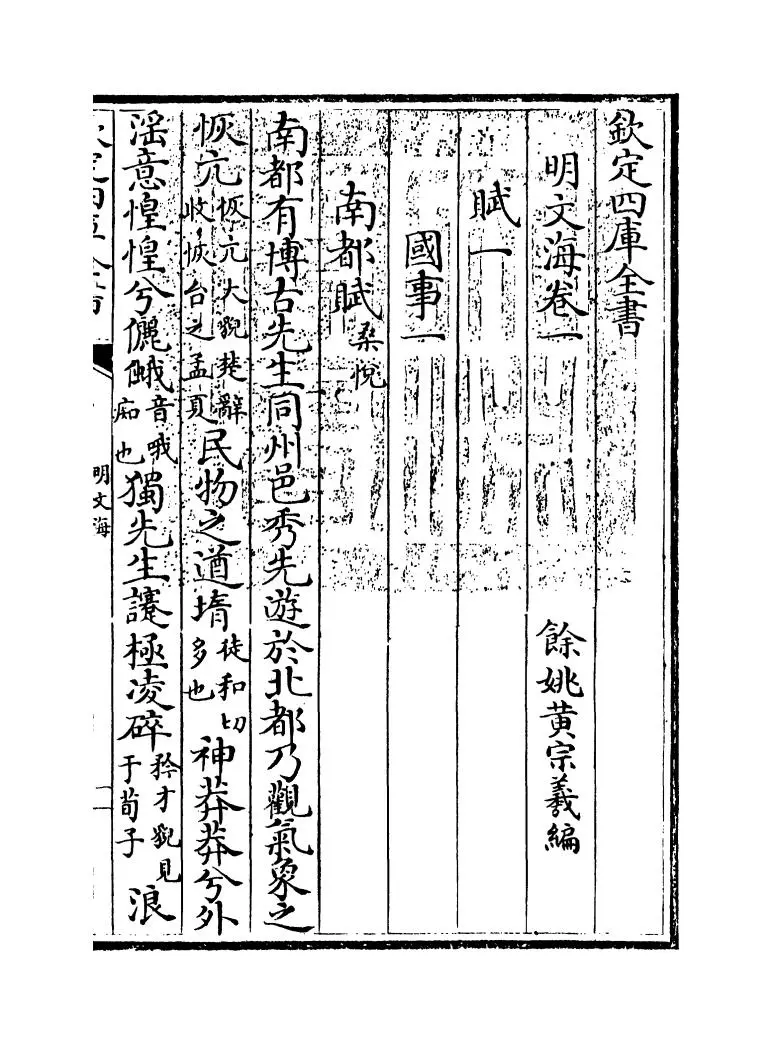 欽定四庫全書
明文海卷一
餘姚黄宗羲編
賦一
國事一
南都賦 桑悦
南都有博古先生同州邑秀先遊於北都乃觀氣象之
恢亢恢亢大貌楚辭收恢台之孟夏民物之遒㙐徒和切多也神莽莽兮外
滛意惶惶兮儷㒟音哦痴也獨先生謰極凌碎矜才貌見于荀子浪
明文海